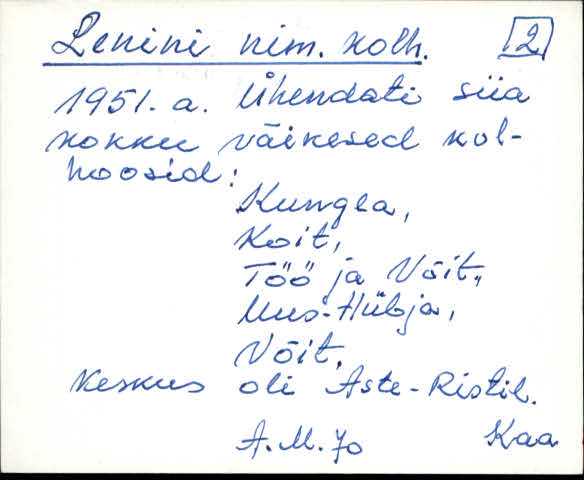 Lenini nim. kolh. 2
1951. a. Ühendati siia
kokku väikesed kol-
hoosid:
Kungla,
Koit,
Töö ja Võit,
Uus-Hübja,
Võit.
Keskus oli Aste-Ristil.
A.M.70 Kaa